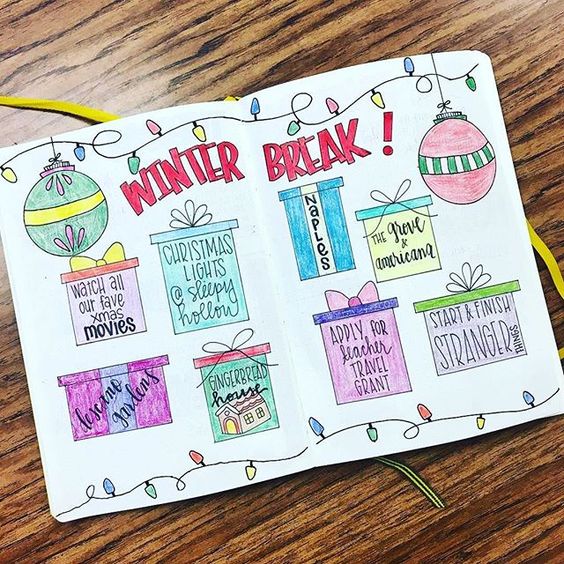 WINTER BREAK!
WATCH ALL
OUR FAVE
XMAS
MOVIES
CHRISTMAS
LIGHTS
@ sleepy
hollow
descanso
gardens
GINGERBREAD
house
NAPLES
THE grove
&
americana
APPLY FOR
teacher
TRAVEL
GRANT
START & FINISH
STRANGER
THINGS